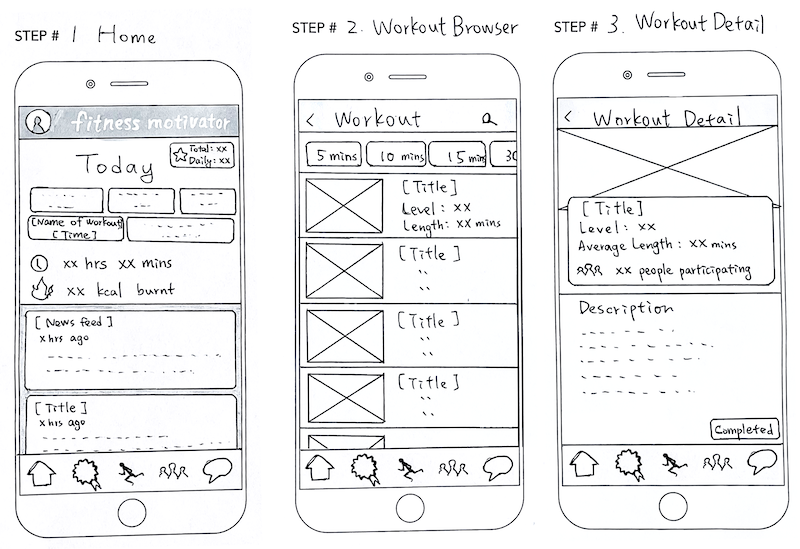 STEP # 1 Home
fitness motivator
Today
Total: xx
Daily: xx
[Name of workout]
[Time]
xx hrs xx mins
xx kcal burnt
[News feed]
x hrs ago
[Title]
x hrs ago
STEP # 2. Workout Browser
< Workout
5 mins 10 mins 15 mins 30
[Title]
Level : xx
Length: xx mins
[Title]
[Title]
[Title]
STEP # 3. Workout Detail
< Workout Detail
[Title]
Level : xx
Average Length : xx mins
xx people participating
Description
Completed